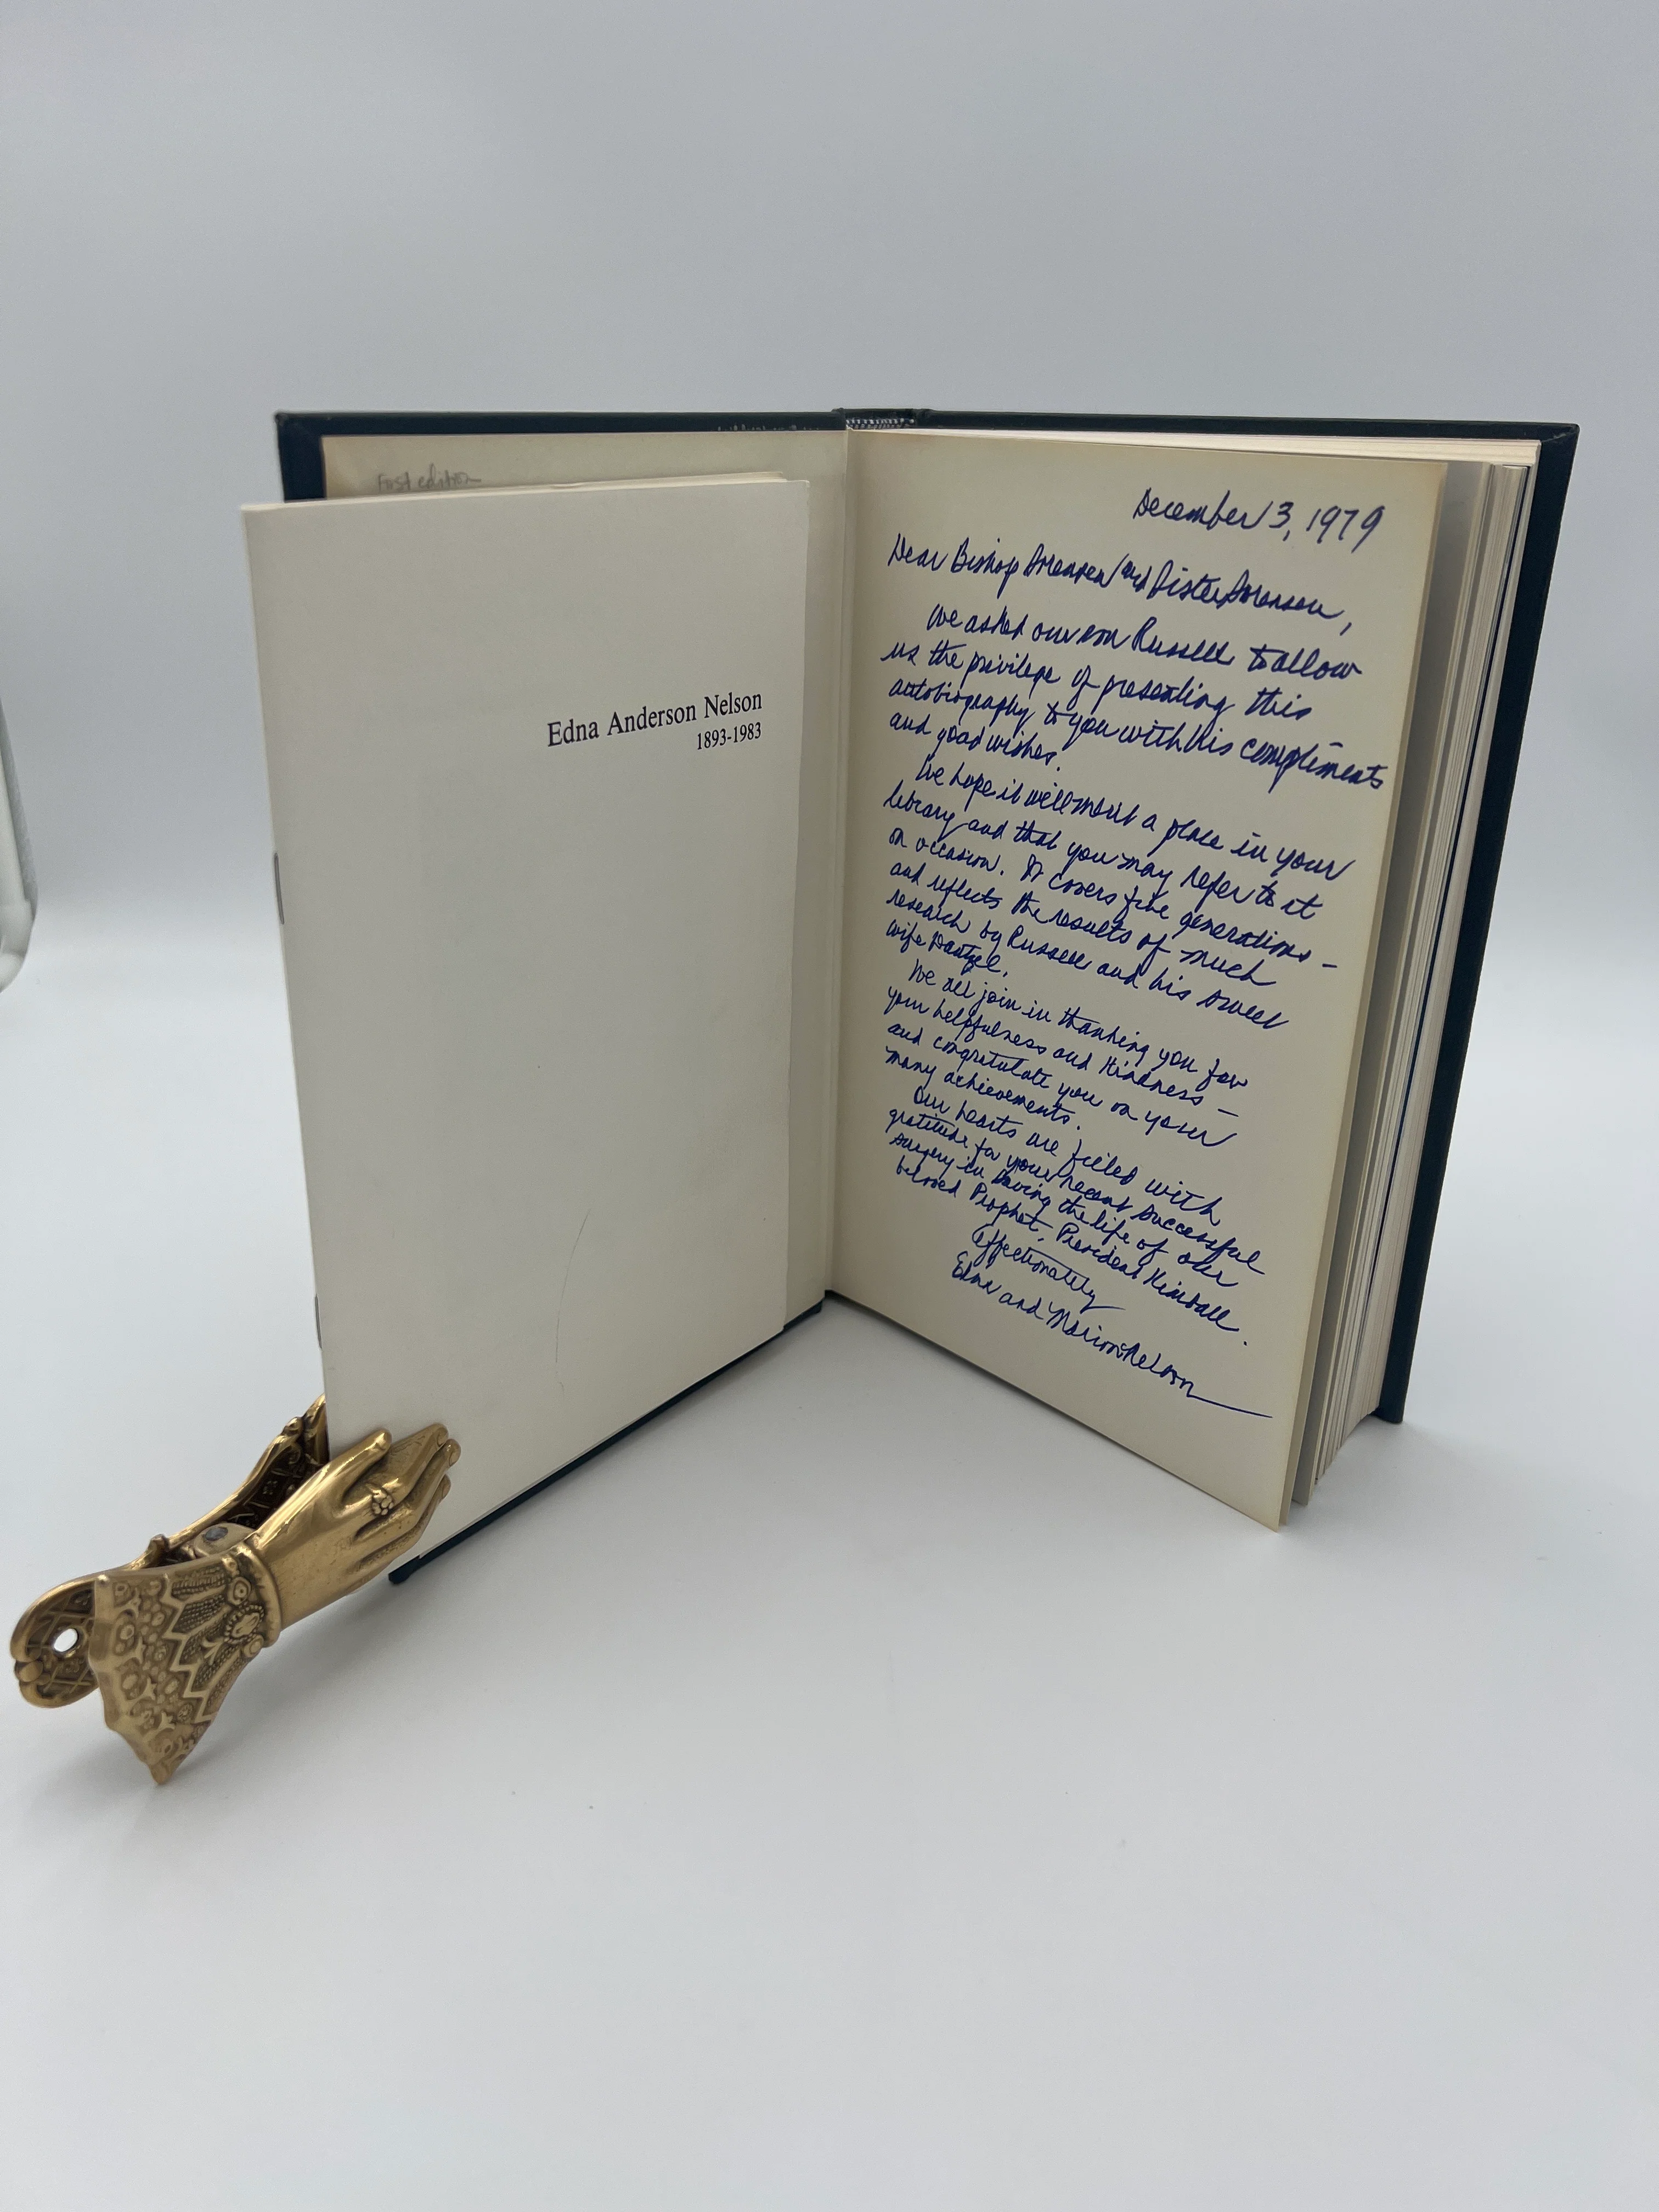 First edition
Edna Anderson Nelson
1893-1983
December 3, 1979
Dear Bishop Sorensen and Sister Sorensen,
We asked our son Russell to allow
us the privilege of presenting this
autobiography to you with his compliments
and good wishes.
We hope it will merit a place in your
library and that you may refer to it
on occasion. It covers five generations -
and reflects the results of much
research by Russell and his sweet
wife Dantzel.
We all join in thanking you for
your helpfulness and kindness -
and congratulate you on your
many achievements.
Our hearts are filled with
gratitude for your recent successful
surgery in saving the life of our
beloved Prophet, President Kimball.
Affectionately
Edna and Marion Nelson